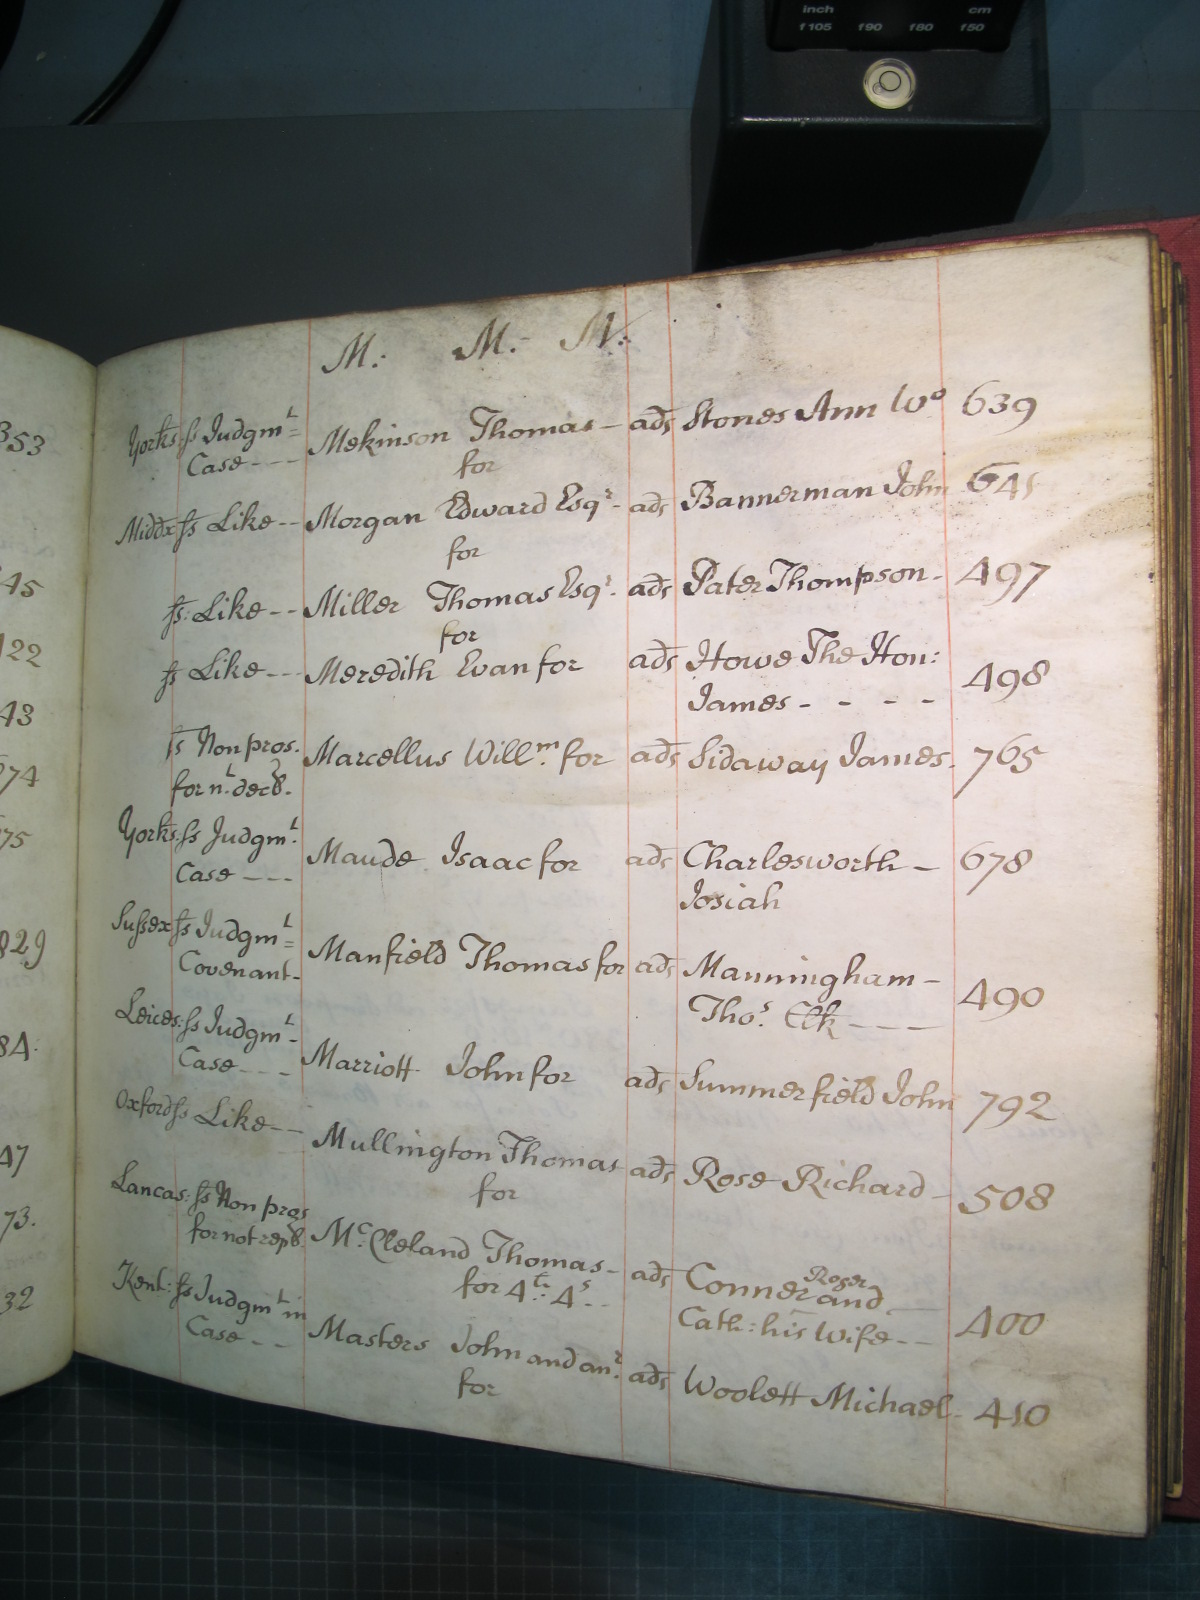 inch cm
f105 f90 f80 f50
M: M: M:
353
Yorks: ss Judgmt Mekinson Thomas – ads Stones Ann Wo 639
Case --- for
Middx ss Like -- Morgan Edward Esqr - ads Bannerman John 641
for
45
ss: Like -- Miller Thomas Esqr. ads Pater Thompson - 497
for
122
ss Like --- Meredith Evan for ads Howe The Hon: 498
James - - - -
43
ss Non pros. Marcellus Willm. for ads Sidaway James. 765
for nt. decl.
74
75
Yorks: ss Judgmt. Maude Isaac for ads Charlesworth – 678
Case --- Josiah
829
Sussex ss Judgmt Manfield Thomas for ads Manningham – 490
Covenant - Thos. Clk ---
84
Leices: ss Judgmt - Marriott John for ads Summerfield John 792
Case ---
Oxford ss Like -- Mullington Thomas ads Rose Richard - 508
for
47
Lancas: ss Non pros Mc. Cleland Thomas - ads Conner Roger and 400
for not repl. for 4t: 4s -- Cath: his Wife --
73.
32
Kent: ss Judgmt in Masters John and anr. ads Woolett Michael - 410
Case -- for